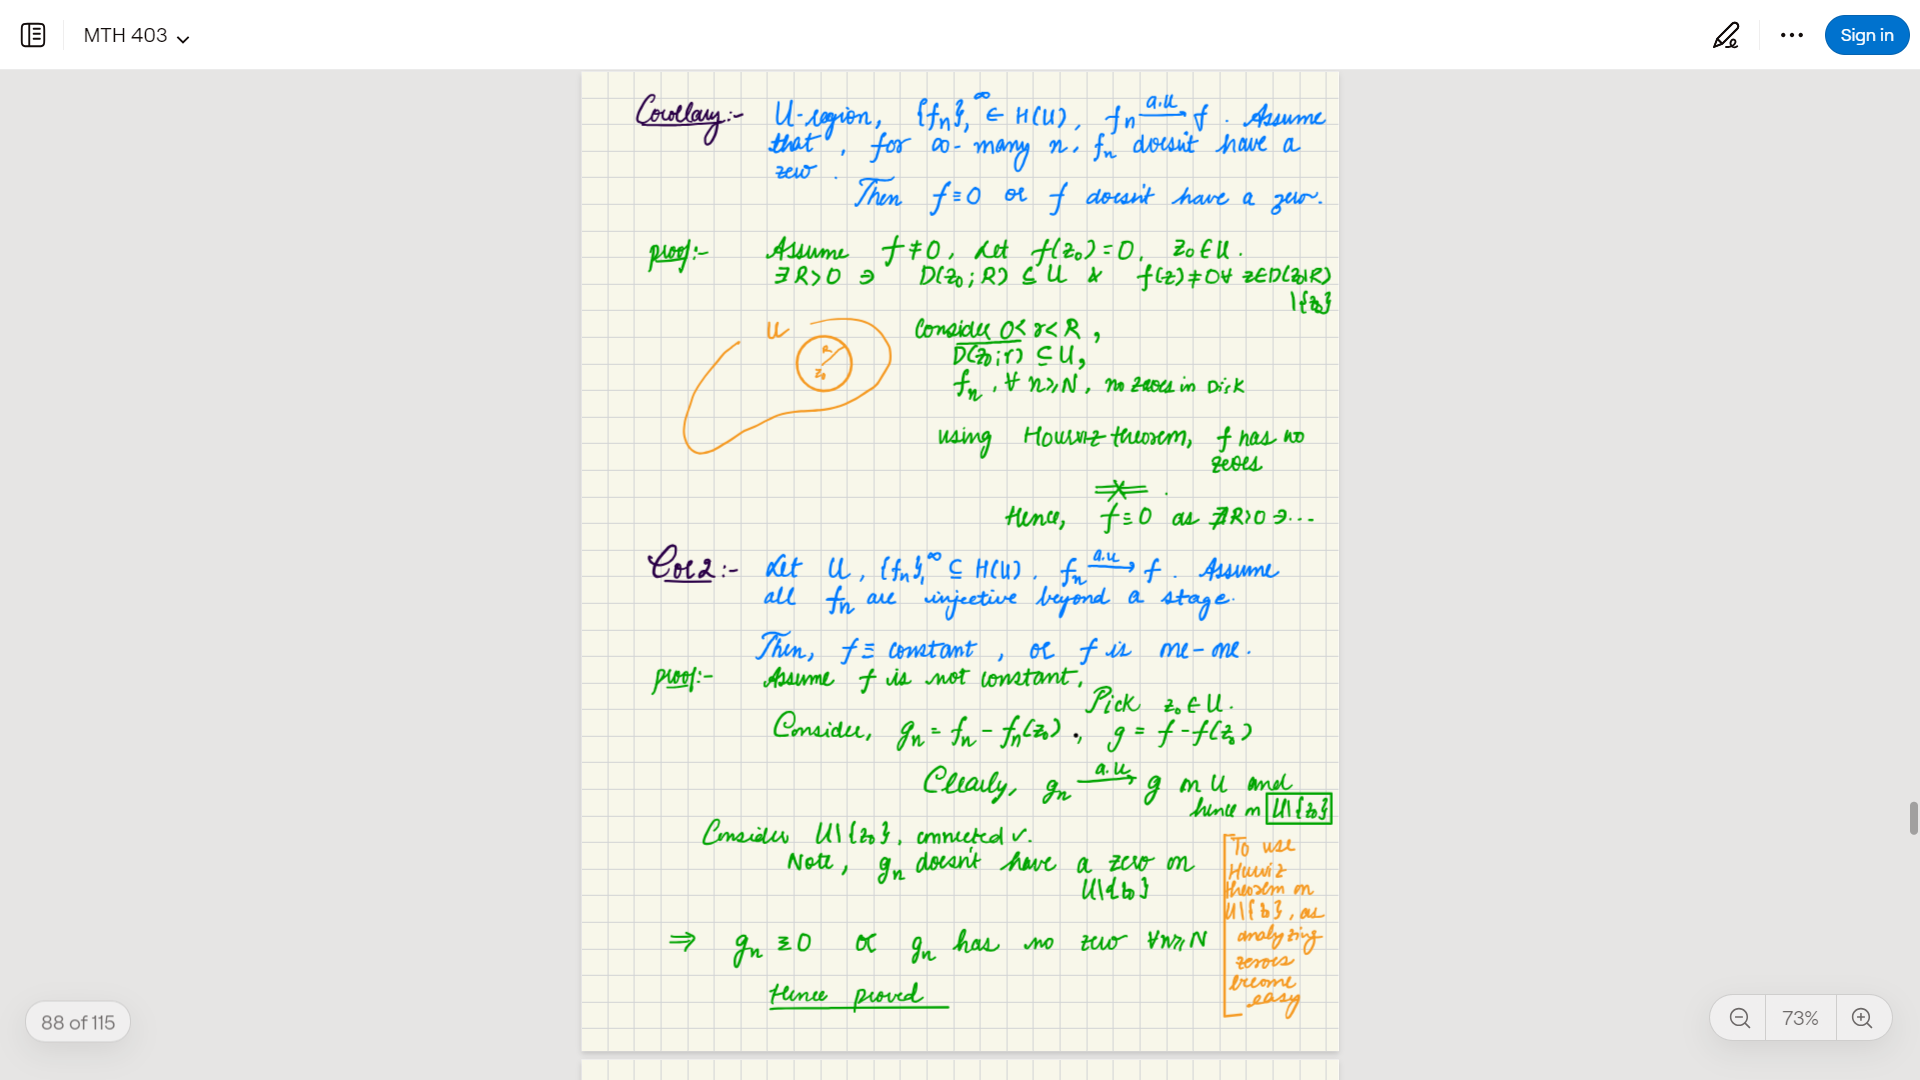 MTH 403
Sign in
Corollary:- U-region, {fn}₁^∞ ∈ H(U), fn —a.u→ f. Assume
that, for ∞-many n, fn doesn't have a
zero.
Then f ≡ 0 or f doesn't have a zero.
proof:- Assume f ≢ 0, Let f(z₀) = 0, z₀ ∈ U.
∃ R>0 ∋ D(z₀; R) ⊆ U & f(z) ≠ 0 ∀ z∈D(z₀;R)
\{z₀}
U
R
z₀
Consider 0< r< R,
D(z₀;r) ⊆ U,
fn, ∀ n≥N, no zeroes in Disk
using Hourwiz theorem, f has no
zeroes
Hence, f ≡ 0 as ∄R>0 ∋...
Cor2:- Let U, {fn}₁^∞ ⊆ H(U), fn —a.u→ f. Assume
all fn are injective beyond a stage.
Then, f ≡ constant, or f is one-one.
proof:- Assume f is not constant,
Pick z₀ ∈ U.
Consider, gn = fn - fn(z₀), g = f - f(z₀)
Clearly, gn —a.u→ g on U and
hence on U\{z₀}
Consider U\{z₀}, connected ✓.
Note, gn doesn't have a zero on
U\{z₀}
⇒ gn ≡ 0 or gn has no zero ∀n≥N
Hence proved
[To use
Hurwiz
theorem on
U\{z₀}, as
analyzing
zeroes
become
easy
88 of 115
73%